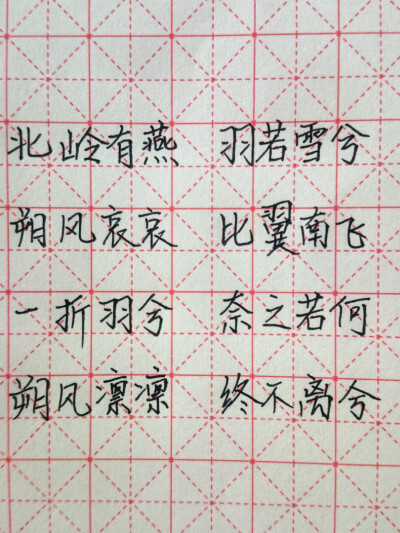 北岭有燕 羽若雪兮
朔风哀哀 比翼南飞
一折羽兮 奈之若何
朔风凛凛 终不离兮